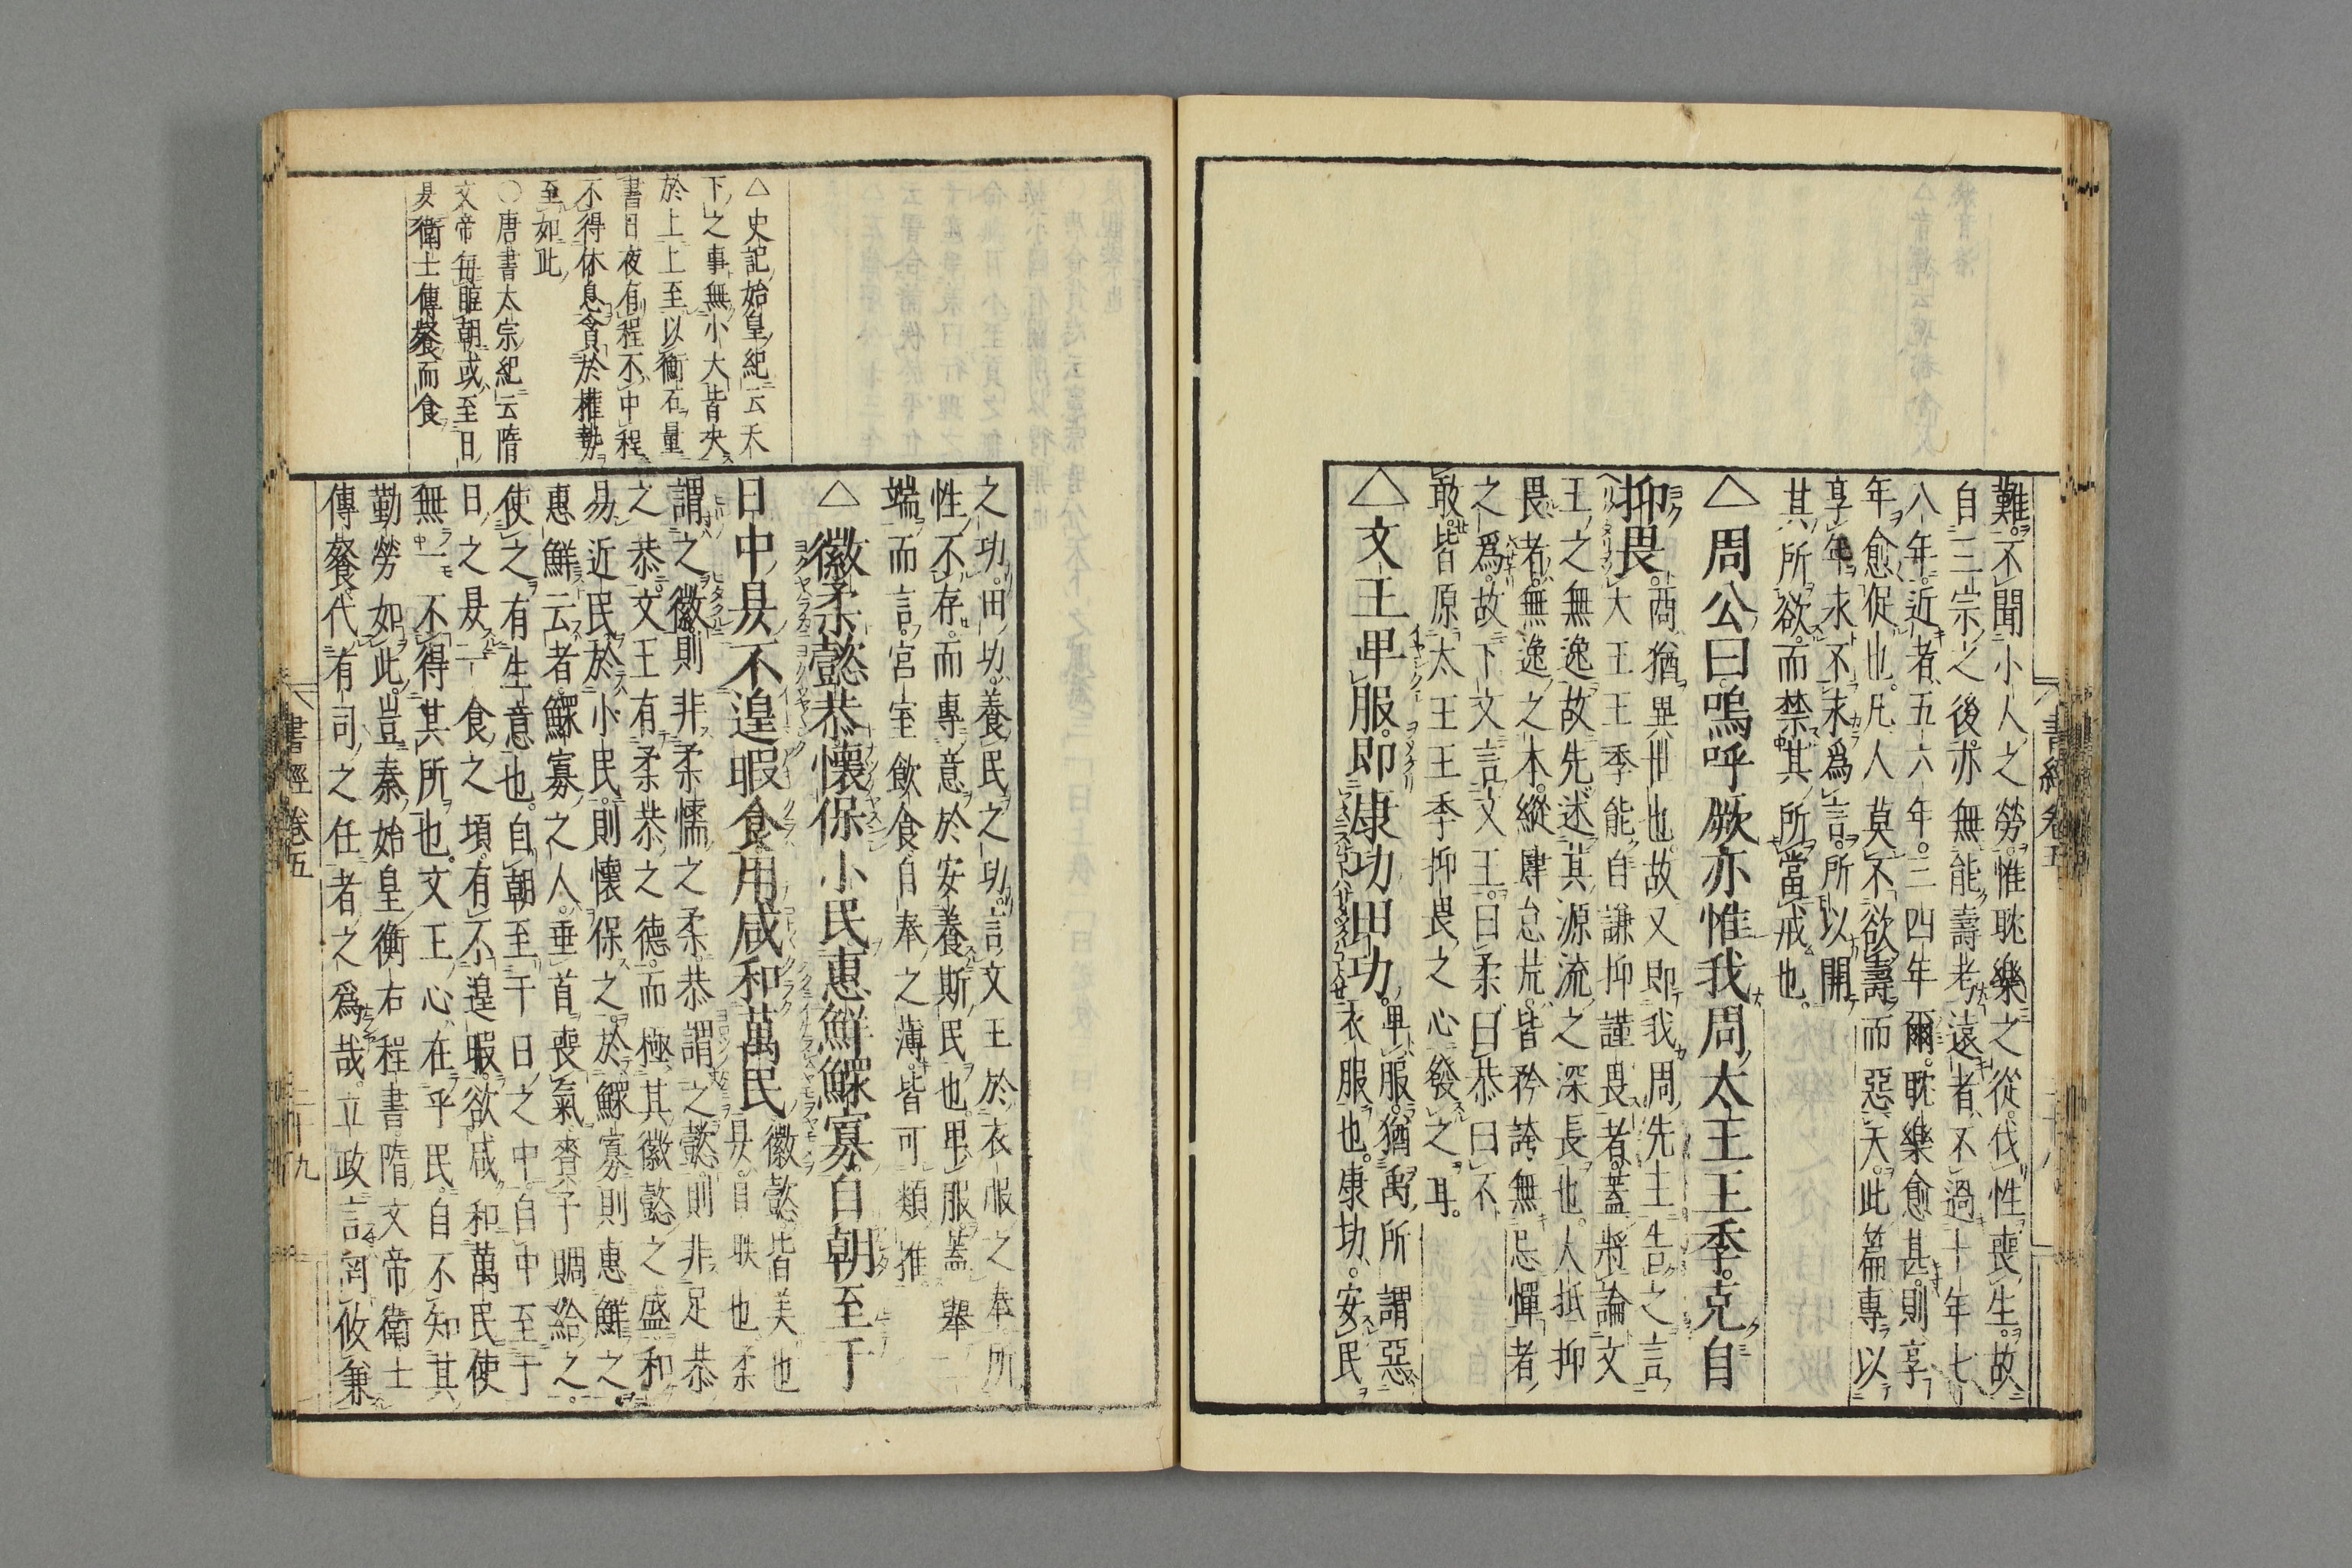 難不聞小人之勞惟耽樂之從伐性喪生故
自三宗之後亦無能壽考遠者不過十年七
八年近者五六年三四年爾耽樂愈甚則享
年愈促也凡人莫不欲壽而惡夭此篇專以
享年永不永爲言所以開
其所欲而禁其所當戒也
△周公曰嗚呼厥亦惟我周太王王季克自
抑畏商猶異世也故又即我周先王告之言
大王王季能自謙抑謹畏者蓋將論文
王之無逸故先述其源流之深長也人抵抑
畏者無逸之本縱肆怠荒皆矜誇無忌憚者
之爲故下文言文王曰柔曰恭曰不
敢皆原太王王季抑畏之心發之耳
△文王卑服即康功田功卑服猶禹所謂惡
衣服也康功安民
書經卷五
之功田功養民之功言文王於衣服之奉所
性不存而專意於安養斯民也卑服蓋舉一
端而言宮室飲食自奉之薄皆可類推
△徽柔懿恭懷保小民惠鮮鰥寡自朝至于
日中昃不遑暇食用咸和萬民徽懿皆美也
昃日昳也柔
謂之徽則非柔懦之柔恭謂之懿則非足恭
之恭文王有柔恭之德而極其徽懿之盛和
易近民於小民則懷保之於鰥寡則惠鮮之
惠鮮云者鰥寡之人垂首喪氣賚予賙給之
使之有生意也自朝至于日之中自中至于
日之昃一食之頃有不遑暇欲咸和萬民使
無一不得其所也文王心在乎民自不知其
勤勞如此豈秦始皇衡石程書隋文帝衛士
傳餐代有司之任者之爲哉立政言罔攸兼
△史記始皇紀云天
下之事無小大皆決
於上上至以衡石量
書日夜有程不中程
不得休息貪於權勢
至如此
○唐書太宗紀云隋
文帝每臨朝或至日
昃衛士傳餐而食
書經卷五
二十九